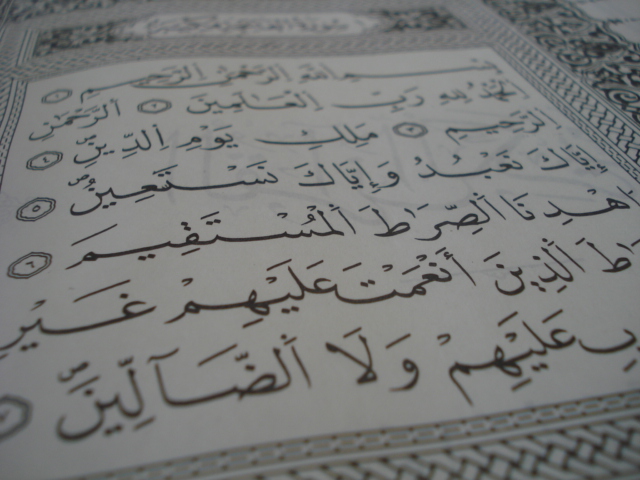 بِسْمِ اللَّهِ الرَّحْمَٰنِ الرَّحِيمِ ١
الْحَمْدُ لِلَّهِ رَبِّ الْعَالَمِينَ ٢ الرَّحْمَٰنِ
الرَّحِيمِ ٣ مَلِكِ يَوْمِ الدِّينِ ٤
إِيَّاكَ نَعْبُدُ وَإِيَّاكَ نَسْتَعِينُ ٥
اهْدِنَا الصِّرَاطَ الْمُسْتَقِيمَ ٦
الَّذِينَ أَنْعَمْتَ عَلَيْهِمْ غَيْرِ
عَلَيْهِمْ وَلَا الضَّآلِّينَ